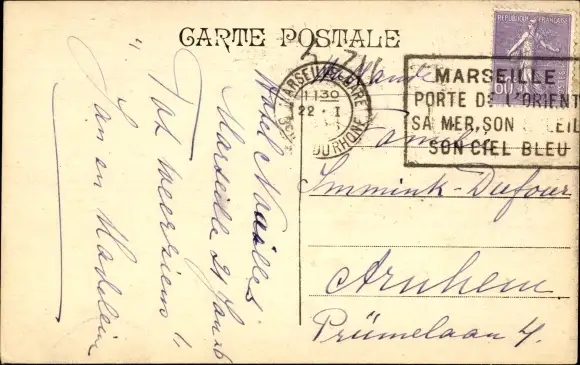 CARTE POSTALE
RÉPUBLIQUE FRANÇAISE
60
MARSEILLE GARE
11 30
22 - I
DU RHONE
MARSEILLE
PORTE DE L'ORIENT
SA MER, SON SOLEIL
SON CIEL BLEU
Hotel Noailles
Marseille 21 Jan 26
Tot weerziens!
Jan en Madeleine
Immink-Dufour
Arnhem
Prümelaan 4.